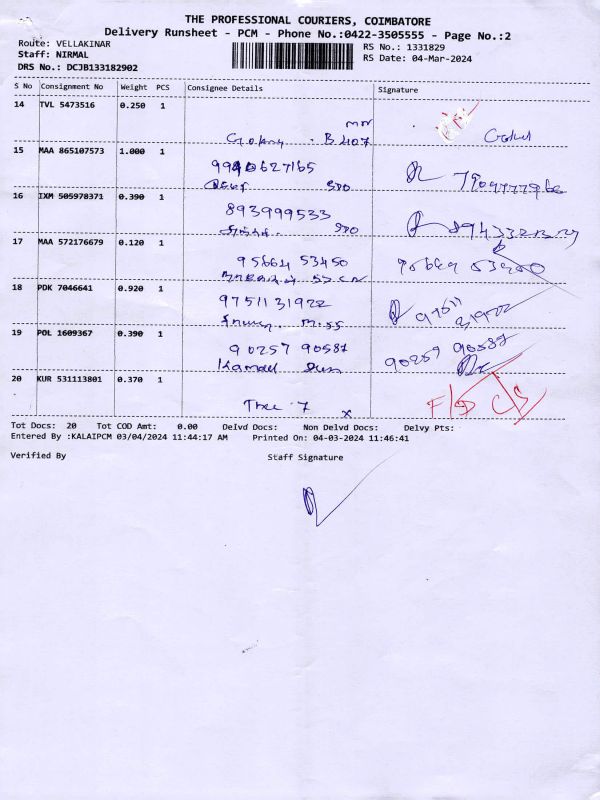 THE PROFESSIONAL COURIERS, COIMBATORE
Delivery Runsheet - PCM - Phone No.:0422-3505555 - Page No.:2
Route: VELLAKINAR
Staff: NIRMAL
DRS No.: DCJB133182902
RS No.: 1331829
RS Date: 04-Mar-2024
S No Consignment No Weight PCS Consignee Details Signature
14 TVL 5473516 0.250 1
B 407
Gokul
15 MAA 865107573 1.000 1
9940627165
16 IXM 505978371 0.390 1
893999533
17 MAA 572176679 0.120 1
95664 53450
18 PDK 7046641 0.920 1
9751131922
19 POL 1609367 0.390 1
90257 90587
90257 90587
20 KUR 531113801 0.370 1
Tot Docs: 20 Tot COD Amt: 0.00 Delvd Docs: Non Delvd Docs: Delvy Pts:
Entered By :KALAIPCM 03/04/2024 11:44:17 AM Printed On: 04-03-2024 11:46:41
Verified By Staff Signature